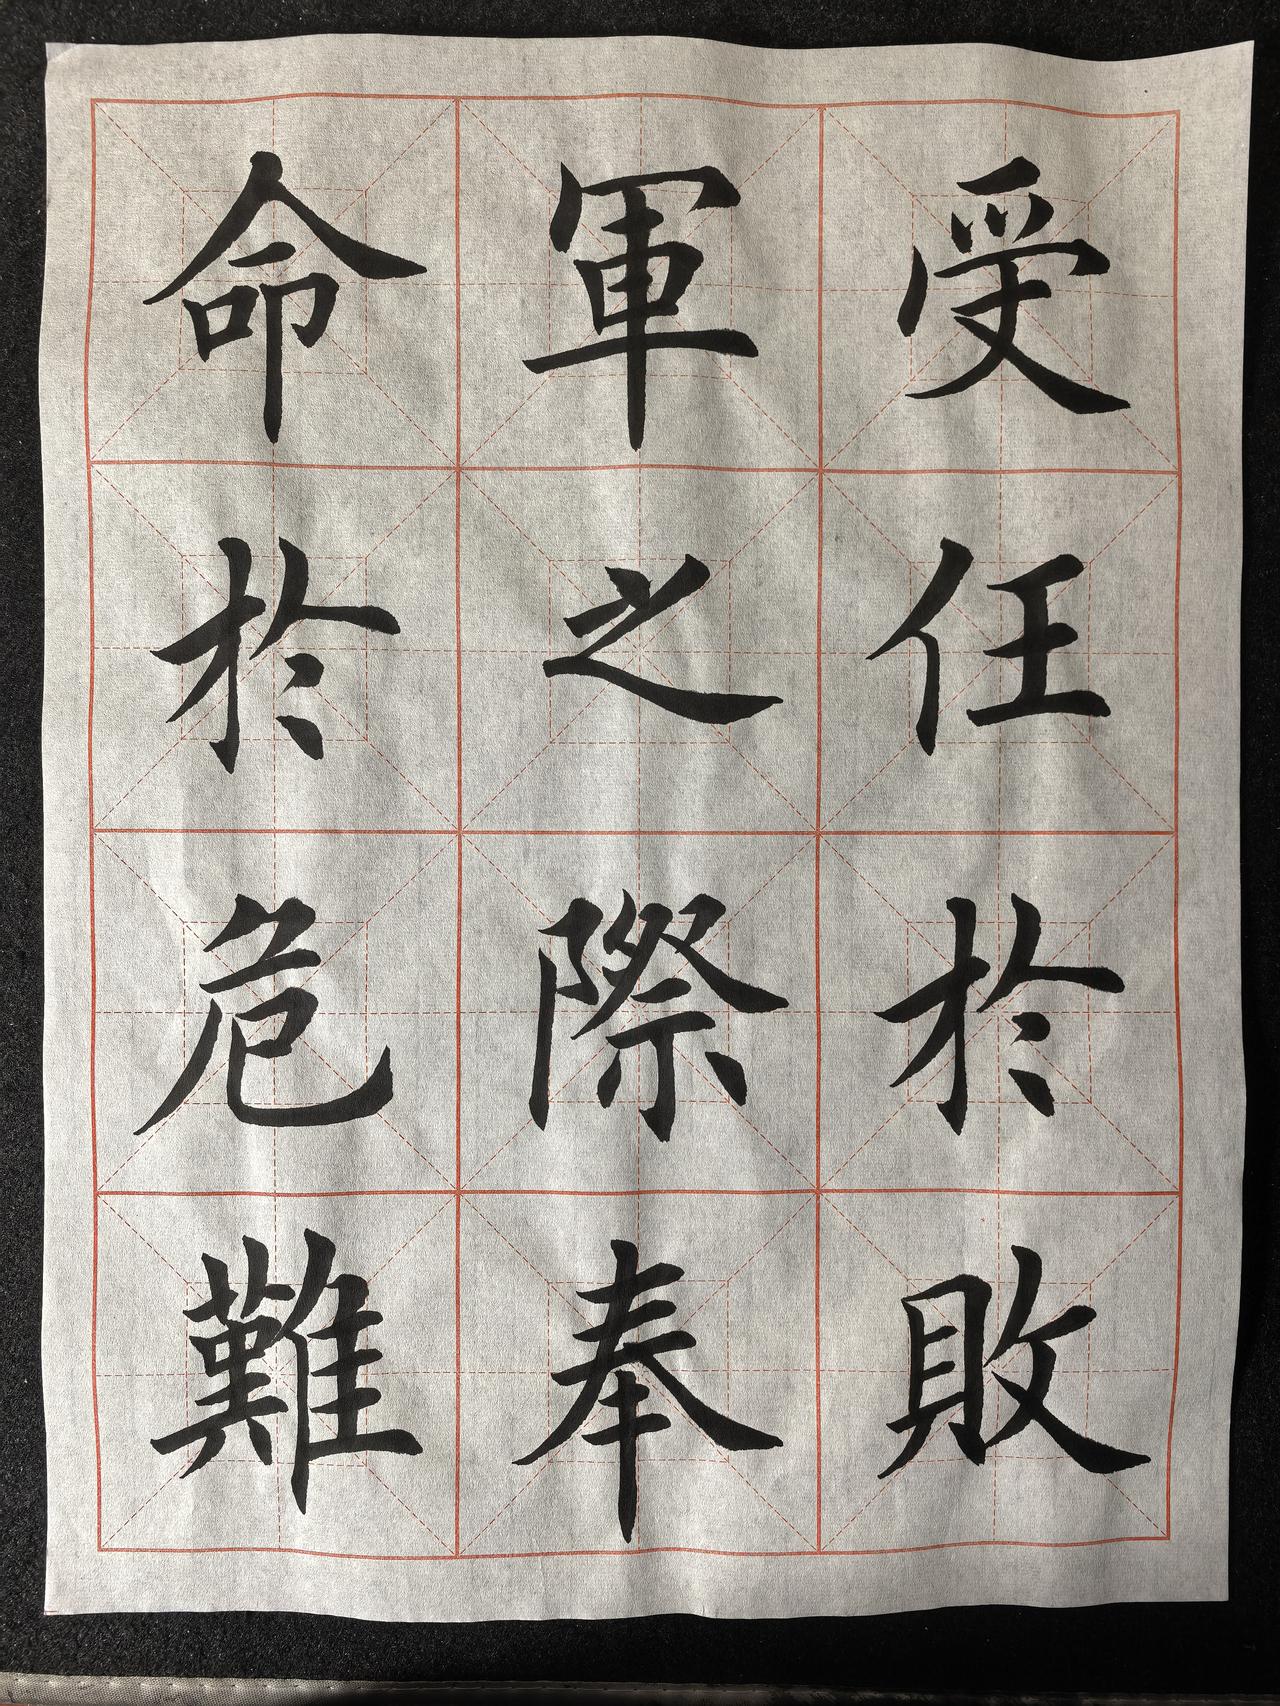 受任於敗
軍之際奉
命於危難